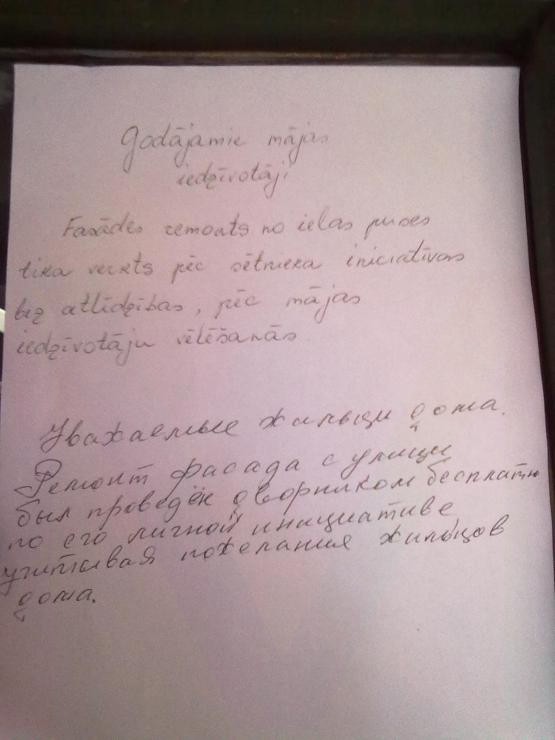 Godājamie mājas
iedzīvotāji
Fasādes remonts no ielas puses
tika veikts pēc sētnieka iniciatīvas
bez atlīdzības, pēc mājas
iedzīvotāju vēlēšanās
Уважаемые жильцы дома.
Ремонт фасада с улицы
был проведён дворником бесплатно
по его личной инициативе
учитывая пожелания жильцов
дома.